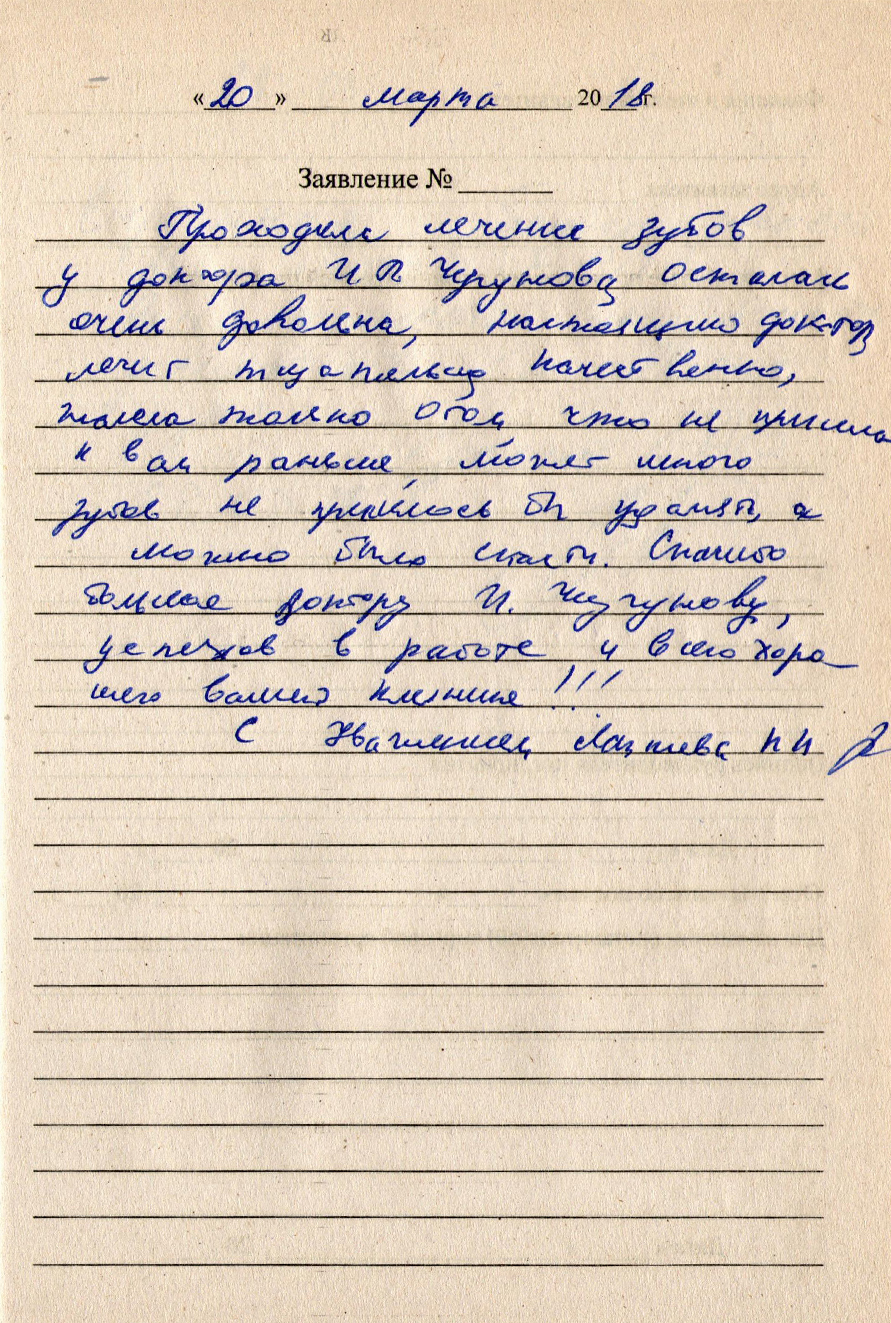 «20» марта 2018г.
Заявление №
Проходила лечение зубов
у доктора И.П. Чугунова осталась
очень довольна, настоящий доктор
лечит тщательно качественно,
жалела только о том, что не пришла
к вам раньше, может много
зубов не пришлось бы удалять, а
можно было спасти. Спасибо
большое доктору И. Чугунову,
успехов в работе и всего хоро
шего вашей клинике!!!
С Уважением